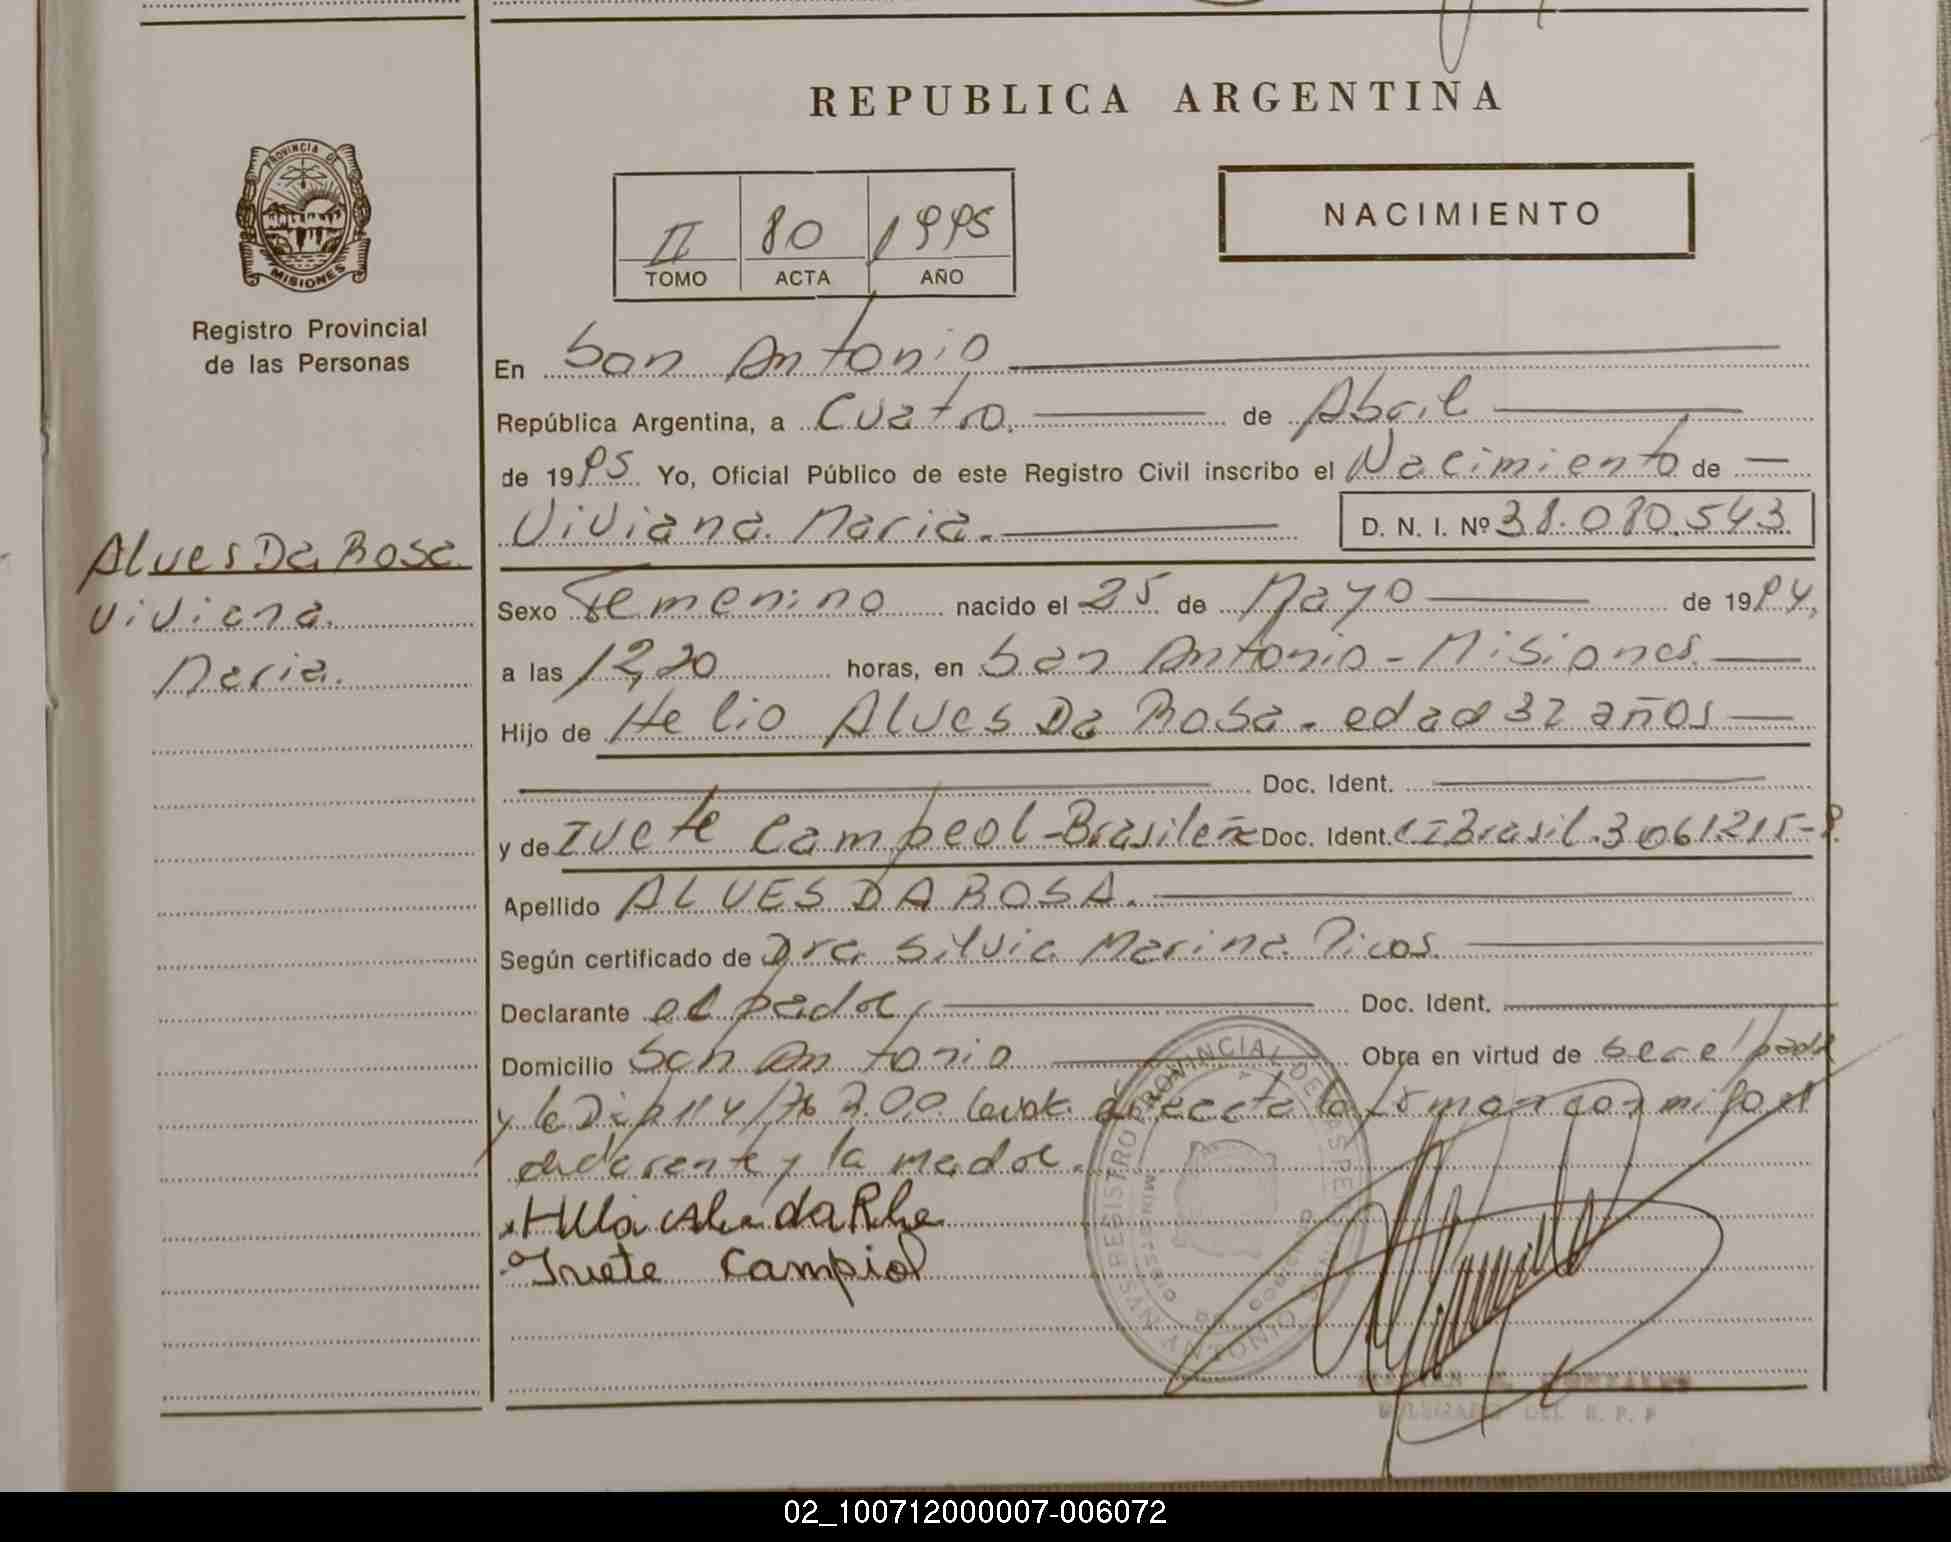 REPUBLICA ARGENTINA
PROVINCIA DE
MISIONES
Registro Provincial
de las Personas
II 80 1995
TOMO ACTA AÑO
NACIMIENTO
En San Antonio
República Argentina, a Cuatro. de Abril
de 1995 Yo, Oficial Público de este Registro Civil inscribo el Nacimiento de
Viviana Maria. D. N. I. Nº 38.080.543
Alves Da Rosa
Viviana
Maria.
Sexo Femenino nacido el 25 de Mayo de 1994,
a las 12,20 horas, en San Antonio - Misiones.
Hijo de Helio Alves Da Rosa. edad 32 años
Doc. Ident.
y de Ivete Campeol - Brasileña Doc. Ident. CI Brasil. 3061215-
Apellido ALVES DA ROSA.
Según certificado de Dra Silvia Marina Picos.
Declarante el padre, Doc. Ident.
Domicilio San Antonio Obra en virtud de ser el padre
y la 200 el acta la firman con migo el
declarante y la madre.
da
Ivete Campiol
REGISTRO PROVINCIAL DE LAS PERSONAS
MINISTERIO DE GOBIERNO
SAN ANTONIO
DELEGADO DEL R. P. P
02_100712000007-006072